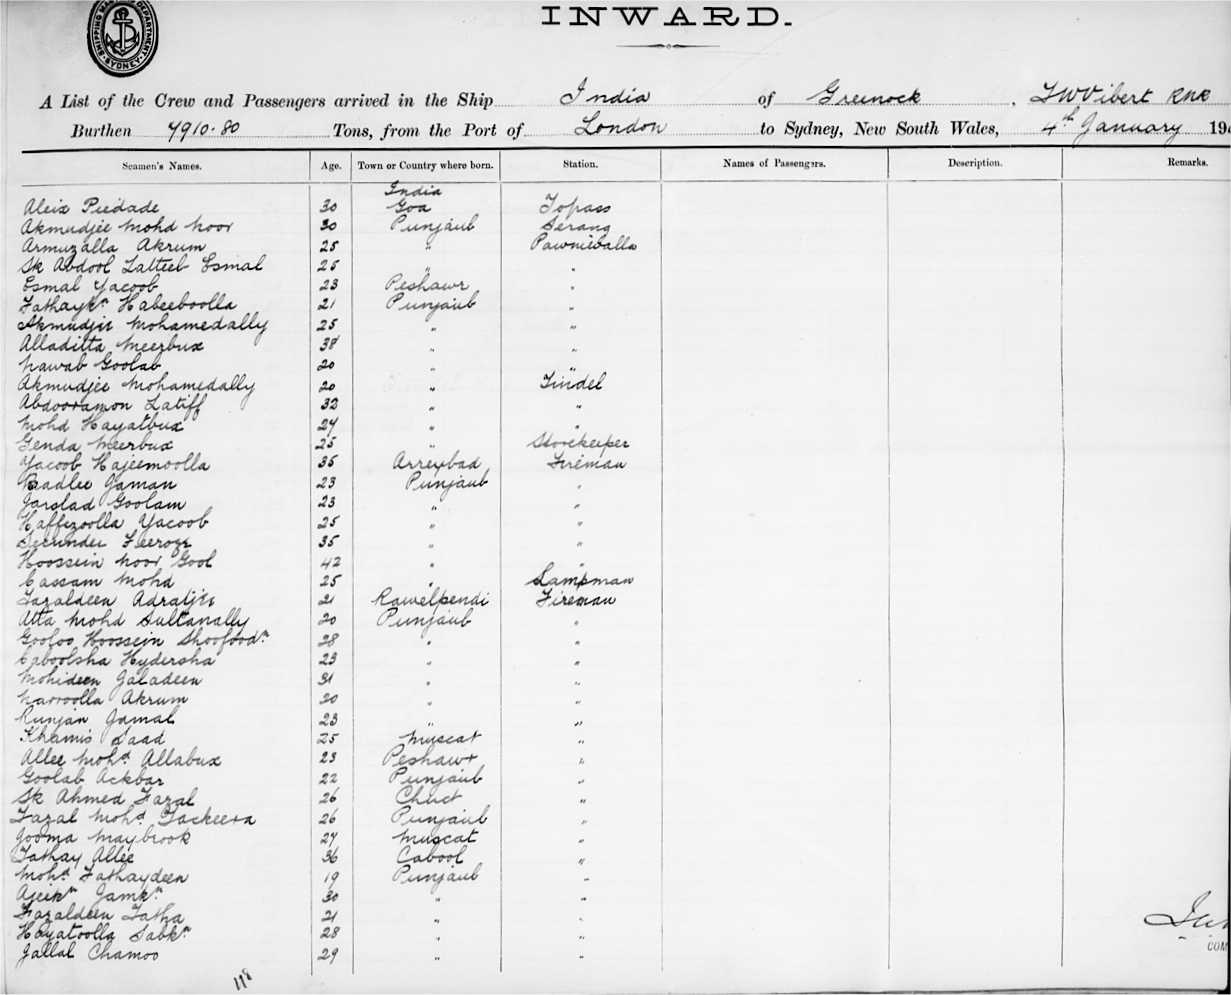 SHIPPING MASTER'S DEPARTMENT SYDNEY
INWARD.
A List of the Crew and Passengers arrived in the Ship India of Greenock, Vibert RNR
Burthen 7910.80 Tons, from the Port of London to Sydney, New South Wales, 4th January 19
Seamen's Names. Age. Town or Country where born. Station. Names of Passengers. Description. Remarks.
India
Aleix Piedade 30 Goa Topass
Akmudjee Mohd Noor 30 Punjaub Serang
Armuzalla Akrum 25 " Pawnieballa
Sk Abdool Latteeb Esmal 25 " "
Esmal Yacoob 23 Peshawr "
Fathaykn Habeeboolla 21 Punjaub "
Akmudjee Mohamedally 25 " "
Alladitta Meerbux 38 " "
Nawab Goolab 20 " "
Akmudjee Mohamedally 20 " Tindel
Abdooramon Latiff 32 " "
Mohd Hayatbux 24 " "
Genda Meerbux 25 " Storekeeper
Yacoob Hajeemoolla 35 Fireman
Jaman 23 Punjaub "
Goolam 23 " "
Haffezoolla Yacoob 25 " "
Secunder Feeroze 35 " "
Hoossein Noor Gool 42 " "
Cassam Mohd 25 " Lampman
Fazaldeen 21 Rawelpendi Fireman
Atta Mohd Sultanally 20 Punjaub "
Gooloo Hoossein 28 " "
Caboolsha Hydersha 23 " "
Mohideen Jaladeen 31 " "
Akrum 20 " "
Runjan Jamal 23 " "
Khamis Saad 25 Muscat "
Allee Mohd Allabux 23 Peshawr "
Goolab Ackbar 22 Punjaub "
Sk Ahmed Fazal 26 "
Fazal Mohd Fackeera 26 Punjaub "
Jooma Maybrook 27 Muscat "
Fathay Allee 36 Cabool "
Mohd Fathaydeen 19 Punjaub "
Jamkn 30 " "
Fazaldeen Fatha 21 " "
Hayatoolla Sabkn 28 " "
Jallal Chamoo 29 " "
118
COM